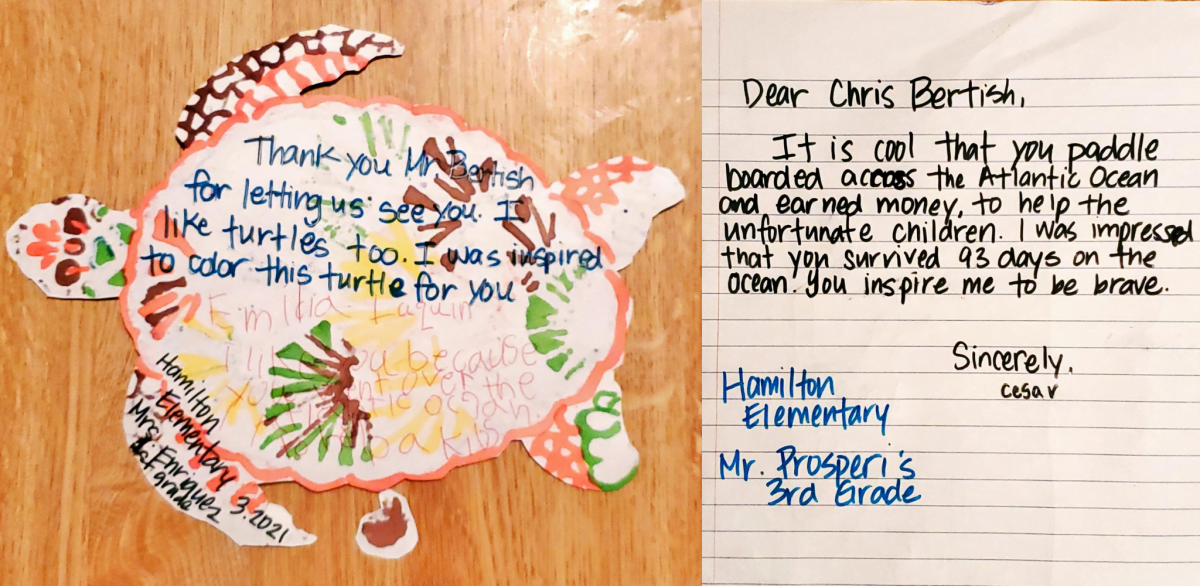 Thank you Mr. Bertish
for letting us see you. I
like turtles too. I was inspired
to color this turtle for you
because
over the
ocean
Hamilton
Elementary 3.2021
Mrs. Enriquez
grade
Dear Chris Bertish,
It is cool that you paddle
boarded across the Atlantic Ocean
and earned money, to help the
unfortunate children. I was impressed
that you survived 93 days on the
ocean. You inspire me to be brave.
Sincerely,
cesar
Hamilton
Elementary
Mr. Prosperi's
3rd Grade